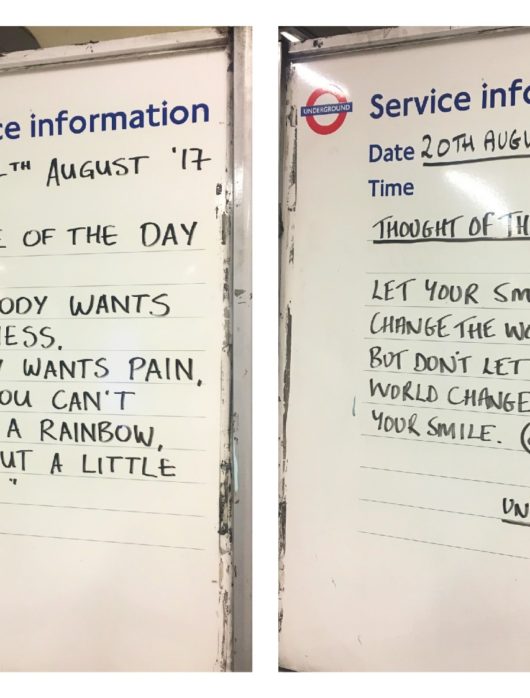 ce information
TH AUGUST '17
OF THE DAY
ODY WANTS
ESS.
WANTS PAIN,
OU CAN'T
A RAINBOW,
UT A LITTLE
"
UNDERGROUND
Service info
Date 20TH AUGU
Time
THOUGHT OF TH
LET YOUR SM
CHANGE THE WO
BUT DON'T LET
WORLD CHANGE
YOUR SMILE.
UN